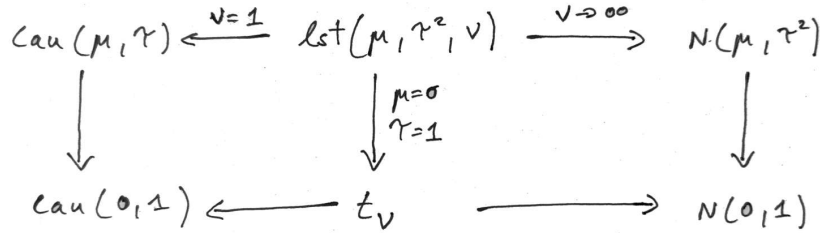 Cau(μ,τ) ν=1 lst(μ,τ²,ν) ν→∞ N(μ,τ²)
μ=0
τ=1
Cau(0,1) t_ν N(0,1)